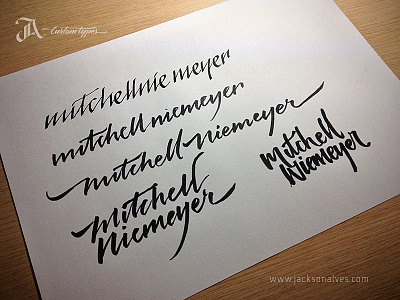 JA custom types
mitchellniemeyer
mitchell niemeyer
mitchell niemeyer
mitchell
Niemeyer
mitchell
Niemeyer
www.jacksonalves.com